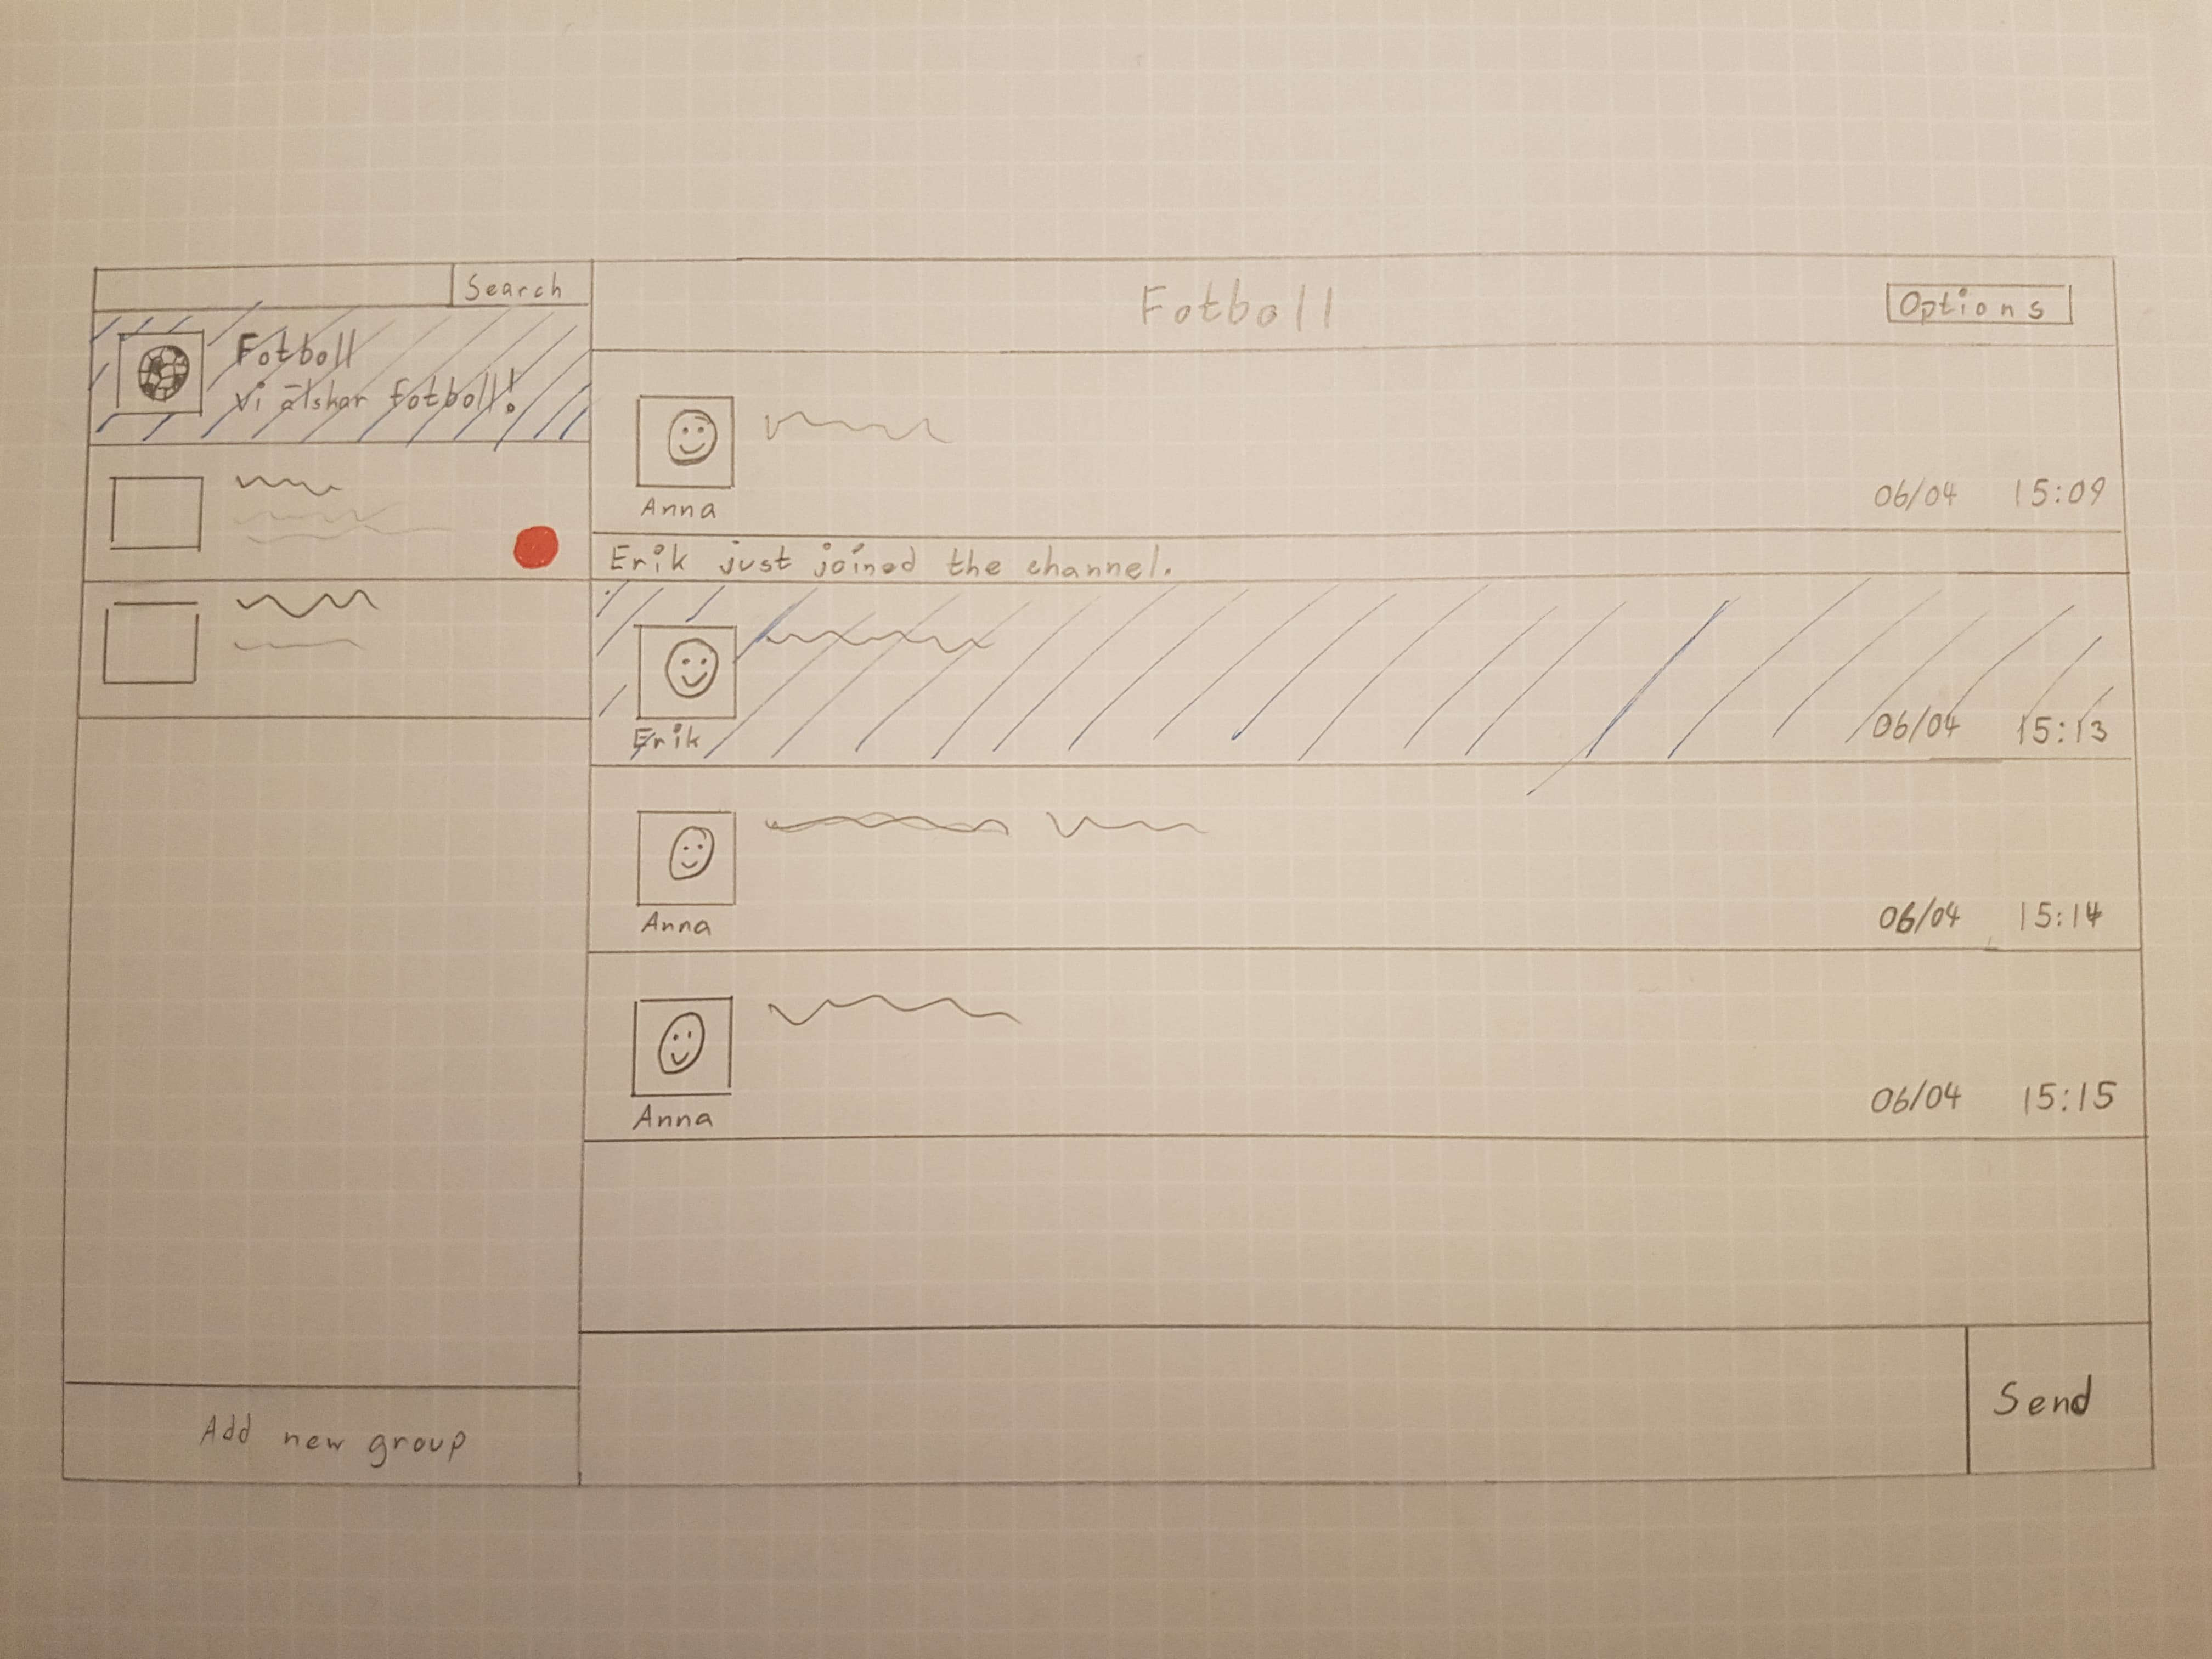 Search
Fotboll
Vi älskar fotboll!
Add new group
Fotboll
Options
Anna
06/04 15:09
Erik just joined the channel.
Erik
06/04 15:13
Anna
06/04 15:14
Anna
06/04 15:15
Send